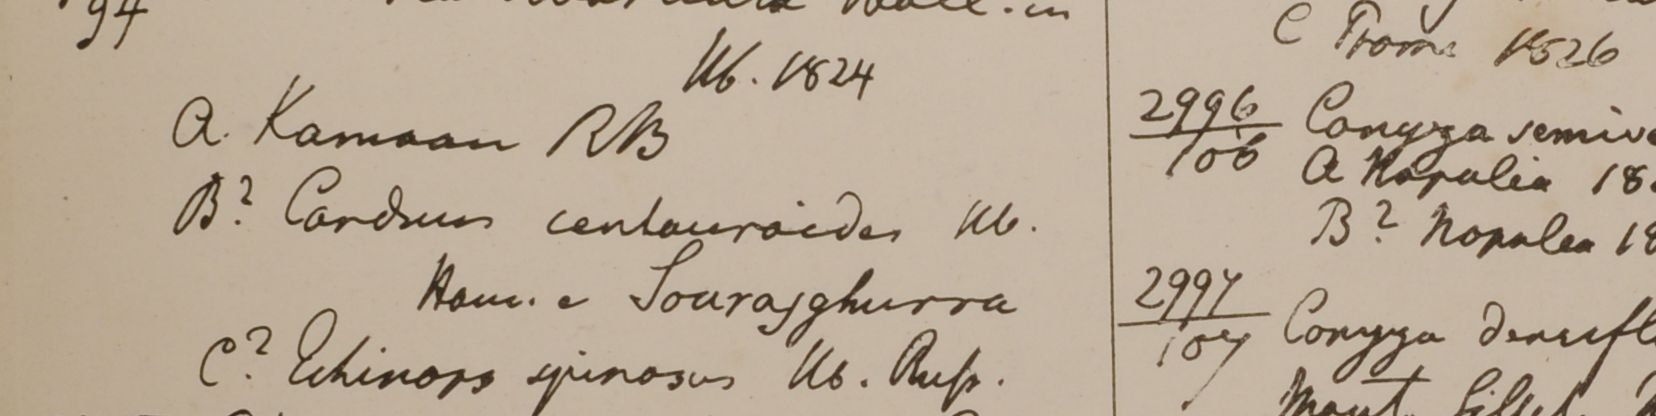 94
Wall. in
Hb. 1824
a. Kamaon RB
B? Carduus centauroides Hb.
Ham. e Sourajghurra
C? Echinops spinosus Hb. Russ.
C Prome 1826
2996
106
Conyza semive
a Napalia 18
B? Napalea 18
2997
107
Conyza densefl
Mont. Sillet.